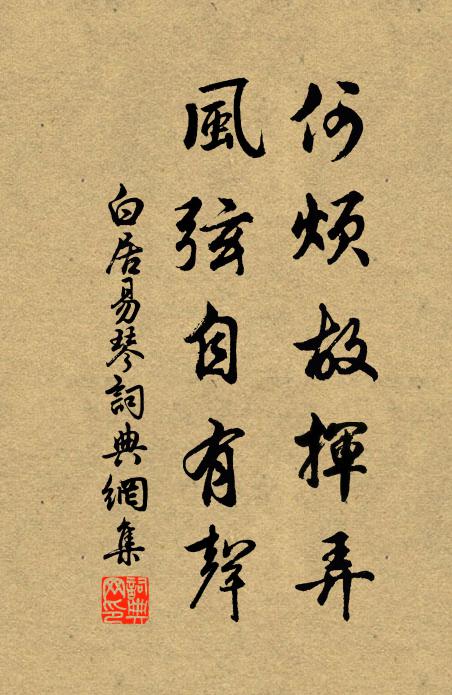 何煩故揮弄
風弦自有聲
白居易琴詞典網集
詞典網印